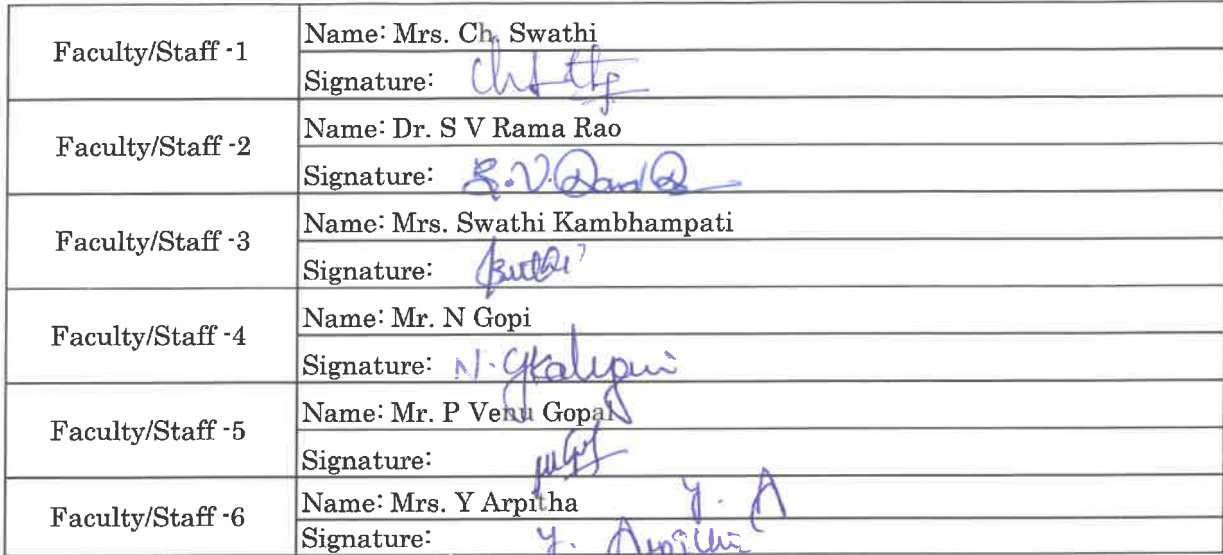 Faculty/Staff -1
Name: Mrs. Ch. Swathi
Signature:
Faculty/Staff -2
Name: Dr. S V Rama Rao
Signature: S.V.
Faculty/Staff -3
Name: Mrs. Swathi Kambhampati
Signature:
Faculty/Staff -4
Name: Mr. N Gopi
Signature: N.
Faculty/Staff -5
Name: Mr. P Venu Gopal
Signature:
Faculty/Staff -6
Name: Mrs. Y Arpitha Y. A
Signature: Y. Arpitha